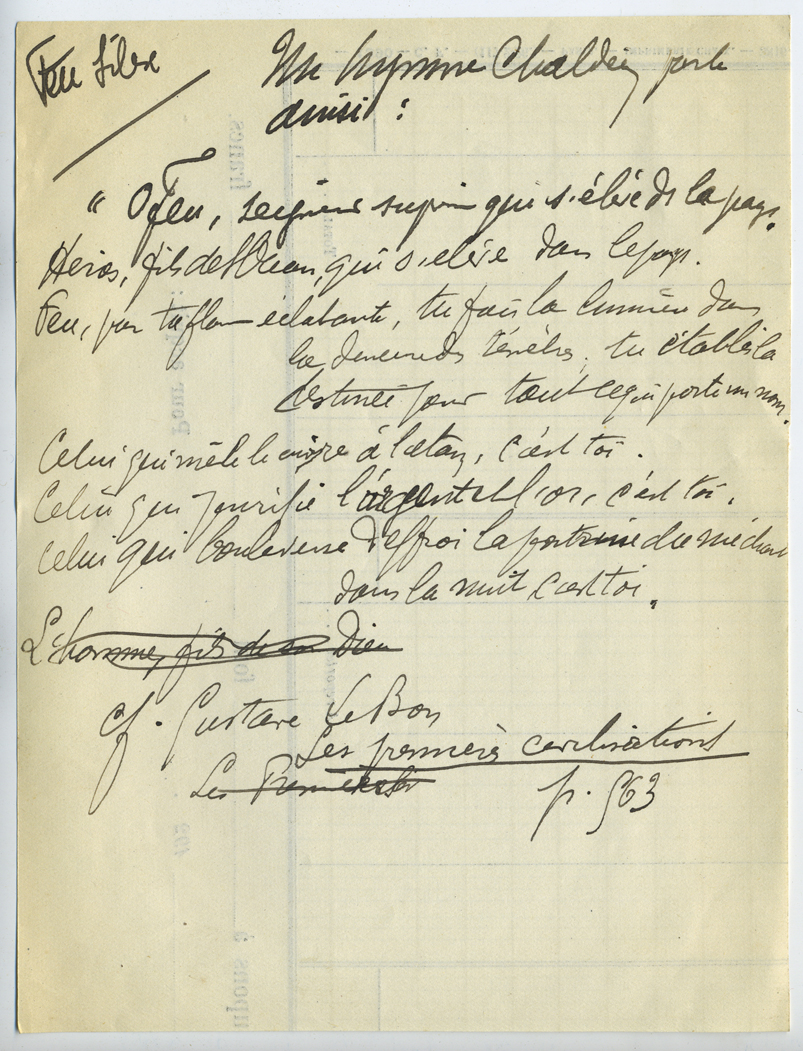 Feu
Un hymne Chaldéen parle
ainsi :
" O Feu, seigneur suprem qui s'élève ds le pays.
Héros, fils de l'Ocean, qui s'elève dans le pays.
Feu, par ta flam éclatante, tu fais la lumière dans
la demeure des ténèbres, tu établis la
destinée pour tout ce qui porte un nom.
Celui qui mêle le cuivre à l'étain, c'est toi.
Celui qui purifie l'argent et l'or, c'est toi.
Celui qui bouleverse d'effroi la poitrine du méchant
dans la nuit c'est toi.
L'homme, fils de son Dieu
cf. Gustave Le Bon
Les premières civilisations
Les Premières
p. 563